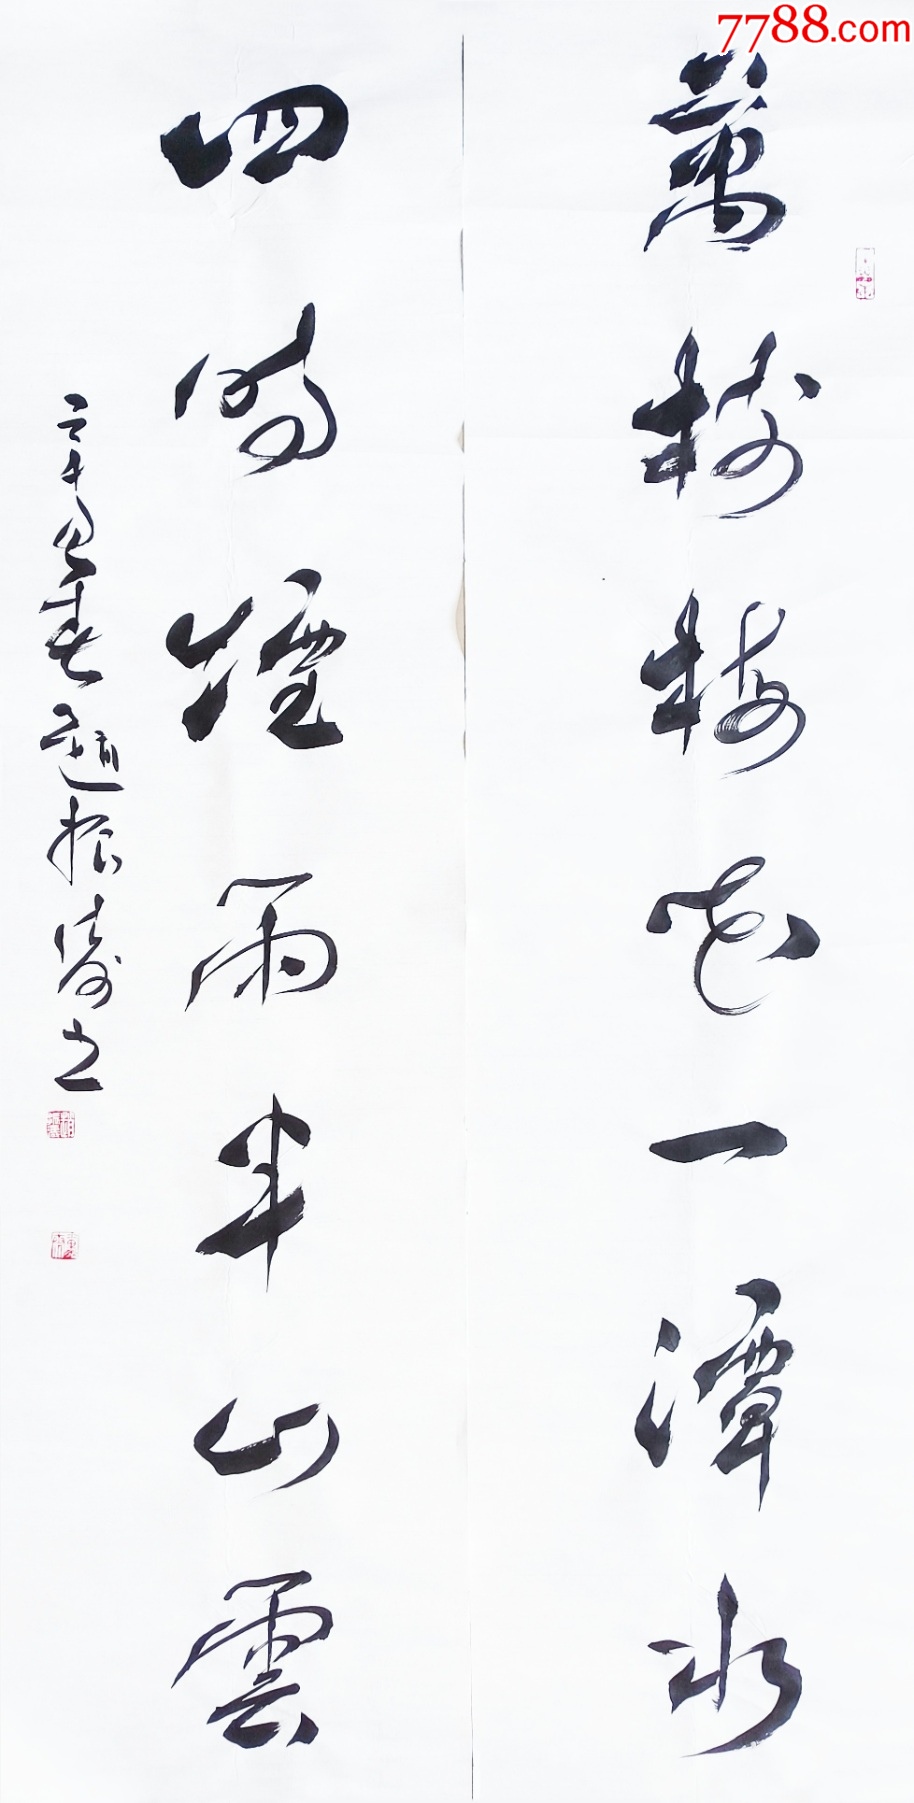 7788.com
萬樹梅花一潭水
四時煙雨半山雲
趙振濤书